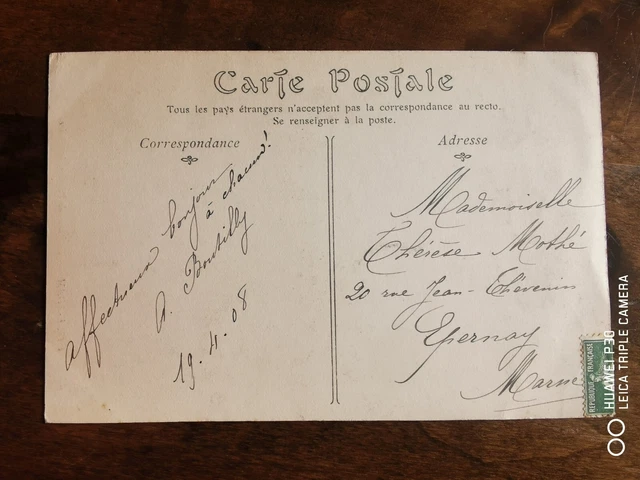 Carte Postale
Tous les pays étrangers n'acceptent pas la correspondance au recto.
Se renseigner à la poste.
Correspondance
affectueux bonjour
à chacun!
A. Boutilly
19.4.08
Adresse
Mademoiselle
Thérèse Mothé
20 rue Jean-Thévenin
Epernay
Marne
REPUBLIQUE FRANÇAISE
HUAWEI P30
LEICA TRIPLE CAMERA